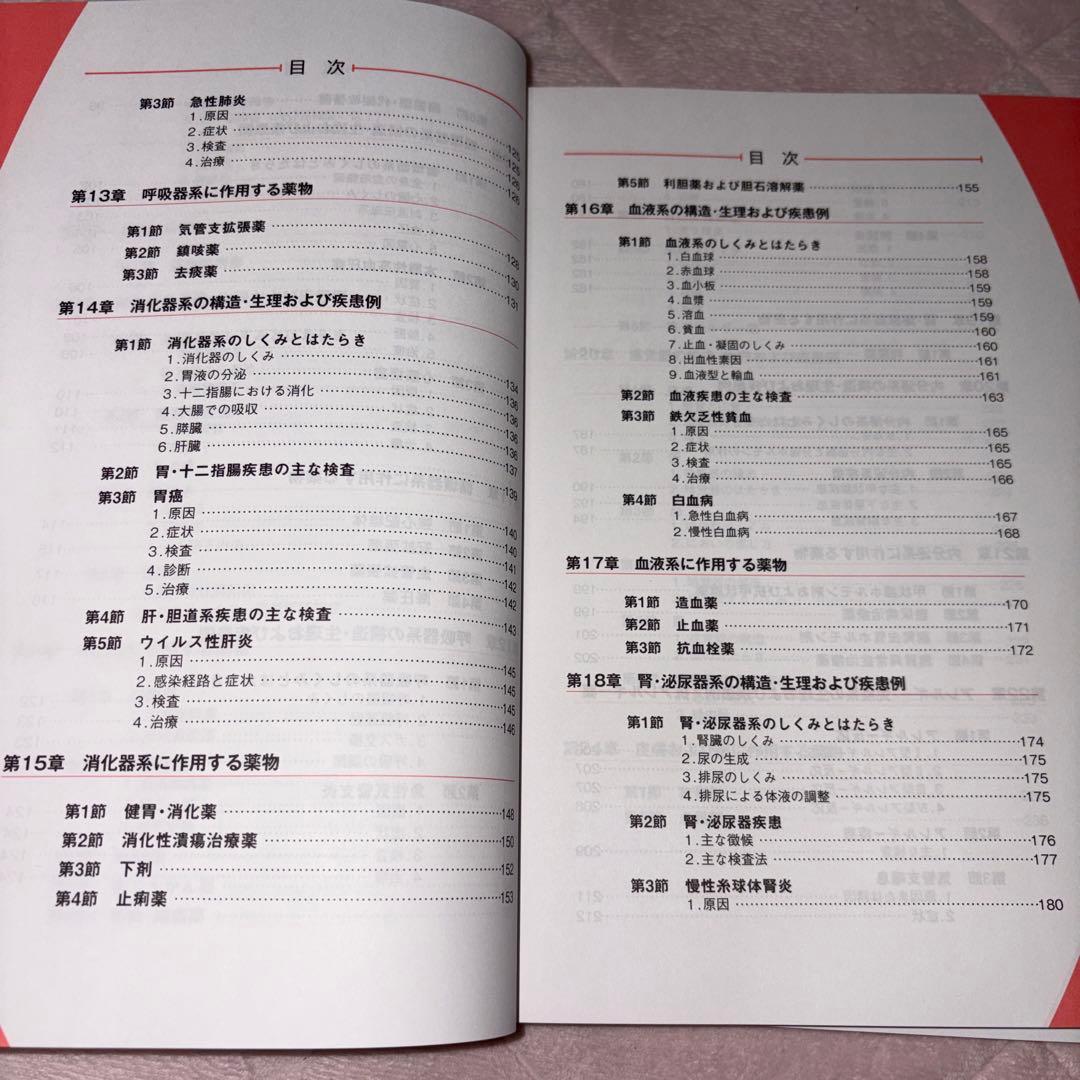 目 次
第3節 急性肺炎
1.原因 125
2.症状 125
3.検査 126
4.治療 126
第13章 呼吸器系に作用する薬物
第1節 気管支拡張薬 128
第2節 鎮咳薬 130
第3節 去痰薬 131
第14章 消化器系の構造・生理および疾患例
第1節 消化器系のしくみとはたらき
1.消化器のしくみ 134
2.胃液の分泌 136
3.十二指腸における消化 136
4.大腸での吸収 136
5.膵臓 136
6.肝臓 137
第2節 胃・十二指腸疾患の主な検査 139
第3節 胃癌
1.原因 140
2.症状 140
3.検査 141
4.診断 142
5.治療 142
第4節 肝・胆道系疾患の主な検査 143
第5節 ウイルス性肝炎
1.原因 145
2.感染経路と症状 145
3.検査 145
4.治療 146
第15章 消化器系に作用する薬物
第1節 健胃・消化薬 148
第2節 消化性潰瘍治療薬 150
第3節 下剤 152
第4節 止痢薬 153
目 次
第5節 利胆薬および胆石溶解薬 155
第16章 血液系の構造・生理および疾患例
第1節 血液系のしくみとはたらき
1.白血球 158
2.赤血球 158
3.血小板 159
4.血漿 159
5.溶血 159
6.貧血 160
7.止血・凝固のしくみ 160
8.出血性素因 161
9.血液型と輸血 161
第2節 血液疾患の主な検査 163
第3節 鉄欠乏性貧血
1.原因 165
2.症状 165
3.検査 165
4.治療 166
第4節 白血病
1.急性白血病 167
2.慢性白血病 168
第17章 血液系に作用する薬物
第1節 造血薬 170
第2節 止血薬 171
第3節 抗血栓薬 172
第18章 腎・泌尿器系の構造・生理および疾患例
第1節 腎・泌尿器系のしくみとはたらき
1.腎臓のしくみ 174
2.尿の生成 175
3.排尿のしくみ 175
4.排尿による体液の調整 175
第2節 腎・泌尿器疾患
1.主な徴候 176
2.主な検査法 177
第3節 慢性糸球体腎炎
1.原因 180